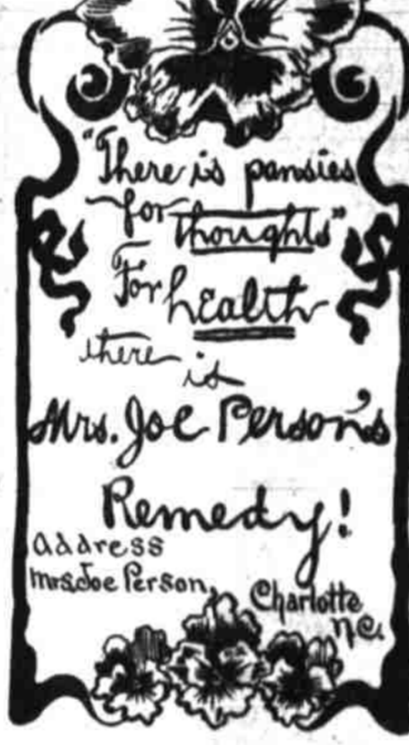 "There is pansies
for thoughts"
For health
there
is
Mrs. Joe Person's
Remedy!
Address
Mrs Joe Person,
Charlotte
N.C.